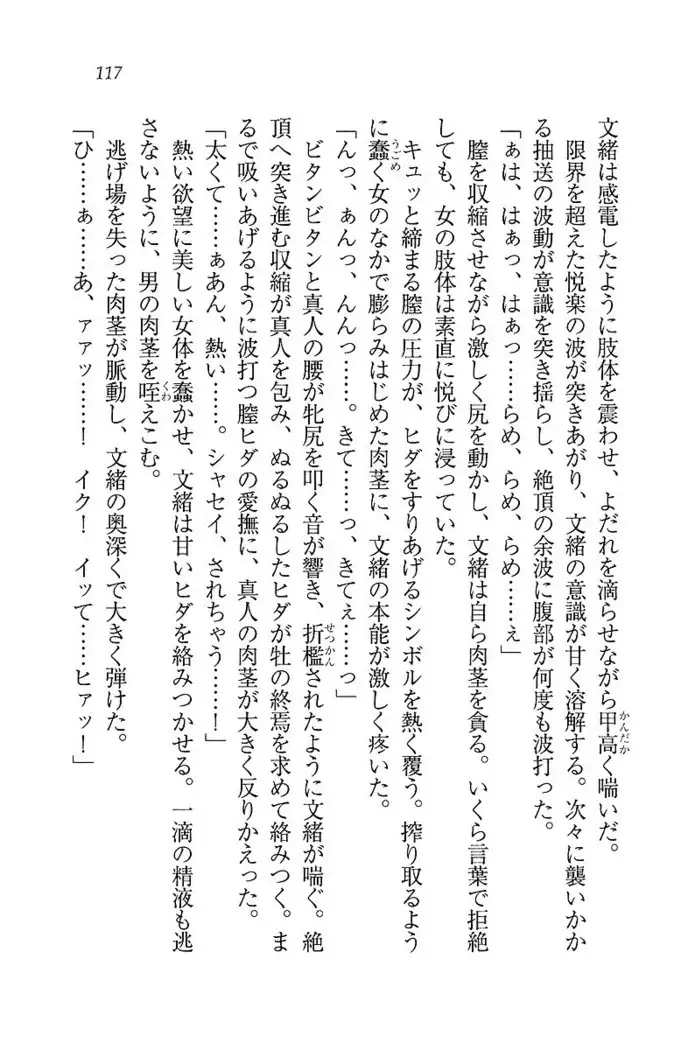 117
文緒は感電したように肢体を震わせ、よだれを滴らせながら甲高く喘いだ。
限界を超えた悦楽の波が突きあがり、文緒の意識が甘く溶解する。次々に襲いかか
る抽送の波動が意識を突き揺らし、絶頂の余波に腹部が何度も波打った。
「ぁは、はぁっ、はぁっ……らめ、らめ、らめ……ぇ」
膣を収縮させながら激しく尻を動かし、文緒は自ら肉茎を貪る。いくら言葉で拒絶
しても、女の肢体は素直に悦びに浸っていた。
キュッと締まる膣の圧力が、ヒダをすりあげるシンボルを熱く覆う。搾り取るよう
に蠢く女のなかで膨らみはじめた肉茎に、文緒の本能が激しく疼いた。
「んっ、ぁんっ、んんっ……。きて……っ、きてぇ……っ」
ビタンビタンと真人の腰が牝尻を叩く音が響き、折檻されたように文緒が喘ぐ。絶
頂へ突き進む収縮が真人を包み、ぬるぬるしたヒダが牡の終焉を求めて絡みつく。ま
るで吸いあげるように波打つ膣ヒダの愛撫に、真人の肉茎が大きく反りかえった。
「太くて……ぁあん、熱い……。シャセイ、されちゃう……！」
熱い欲望に美しい女体を蠢かせ、文緒は甘いヒダを絡みつかせる。一滴の精液も逃
さないように、男の肉茎を咥えこむ。
逃げ場を失った肉茎が脈動し、文緒の奥深くで大きく弾けた。
「ひ……ぁ……あ、ァァッ……！　イク！　イッて……ヒァッ！」